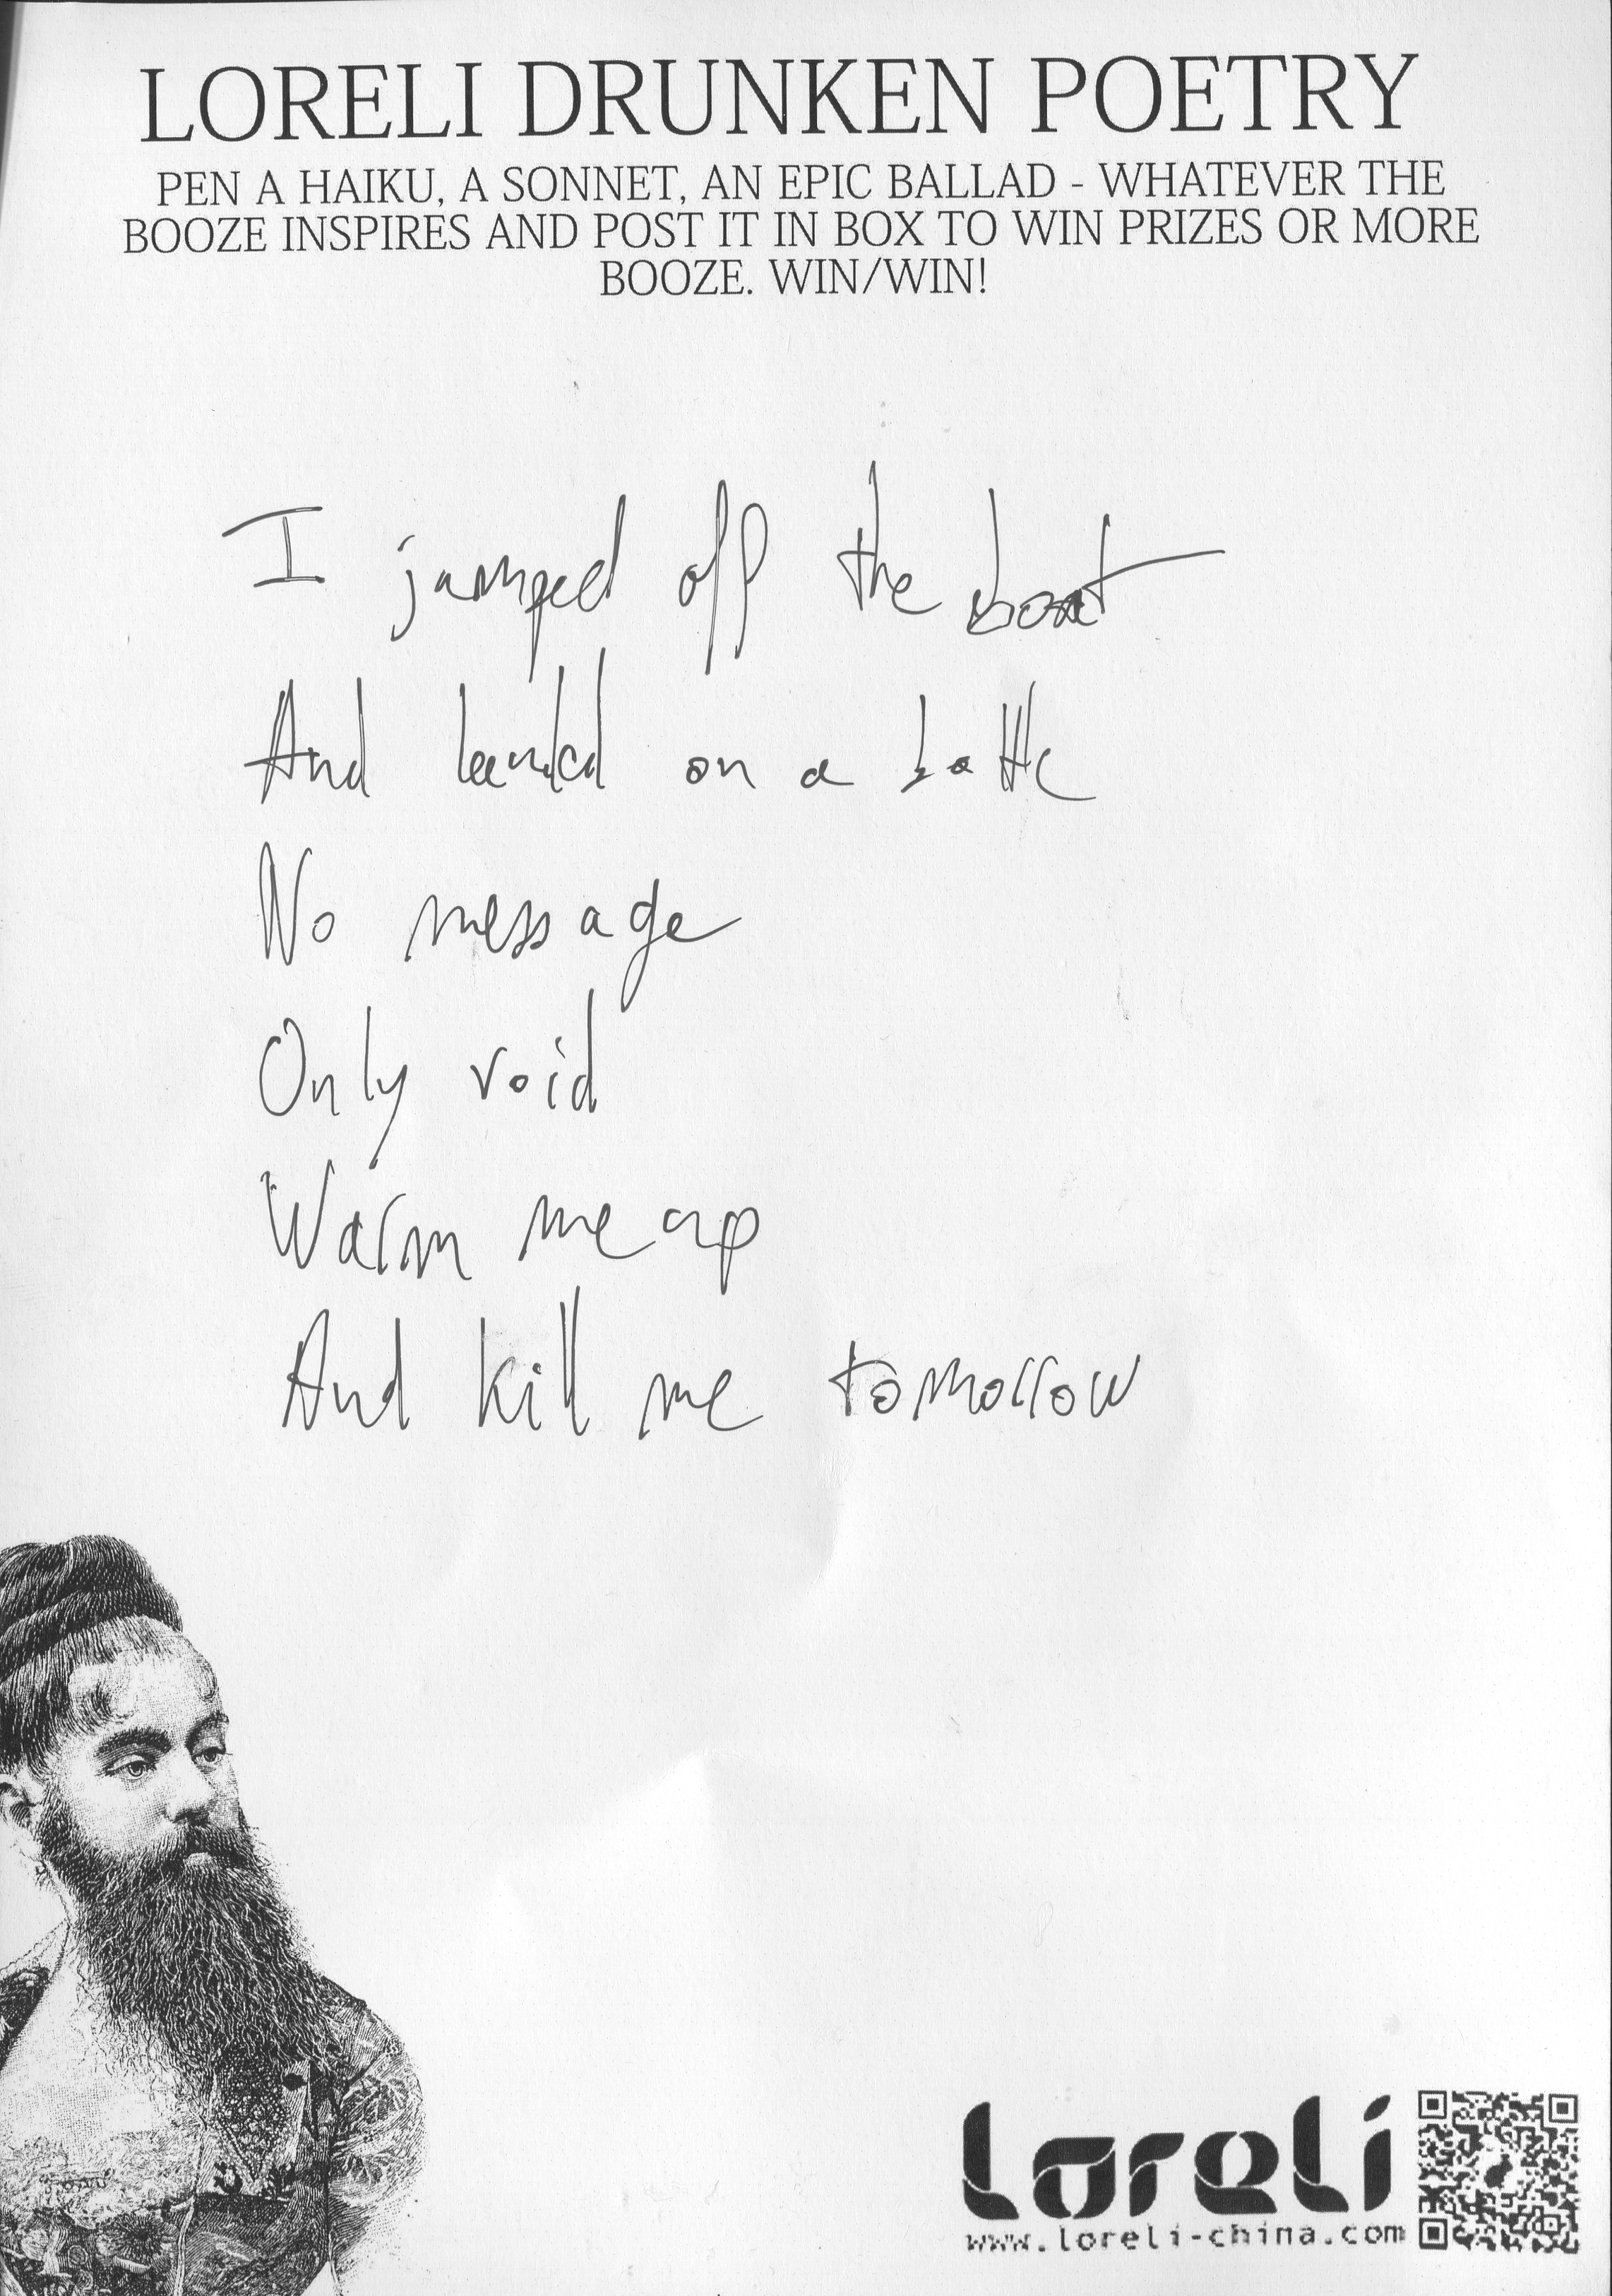 LORELI DRUNKEN POETRY
PEN A HAIKU, A SONNET, AN EPIC BALLAD - WHATEVER THE
BOOZE INSPIRES AND POST IT IN BOX TO WIN PRIZES OR MORE
BOOZE. WIN/WIN!
I jumped off the boat
And landed on a bottle
No message
Only void
Warm me up
And kill me tomorrow
Loreli
www.loreli-china.com